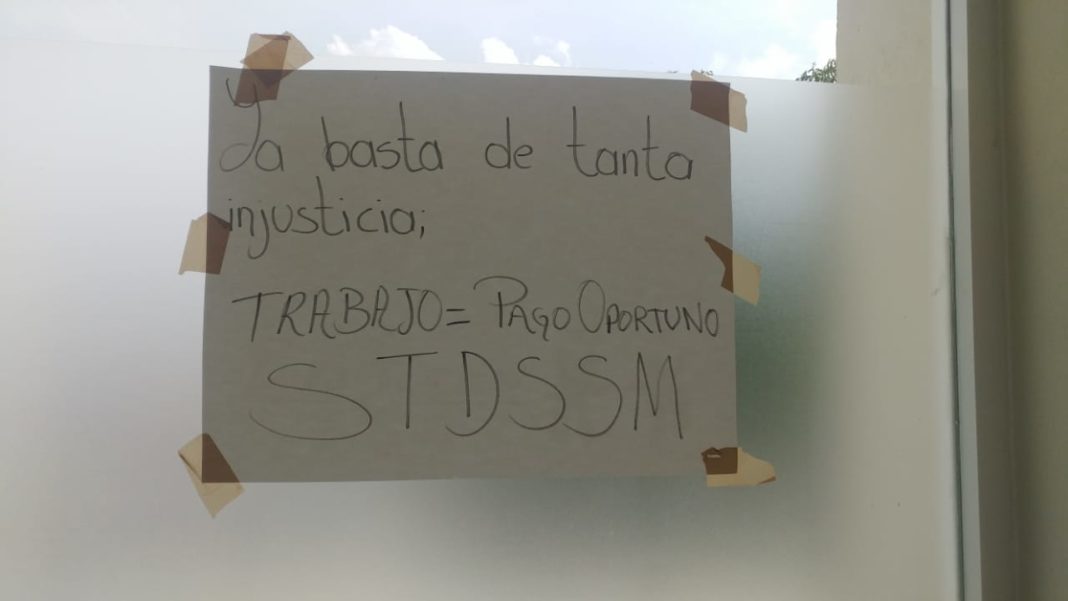 Ya basta de tanta
injusticia;
TRABAJO= PAGO OPORTUNO
STDSSM